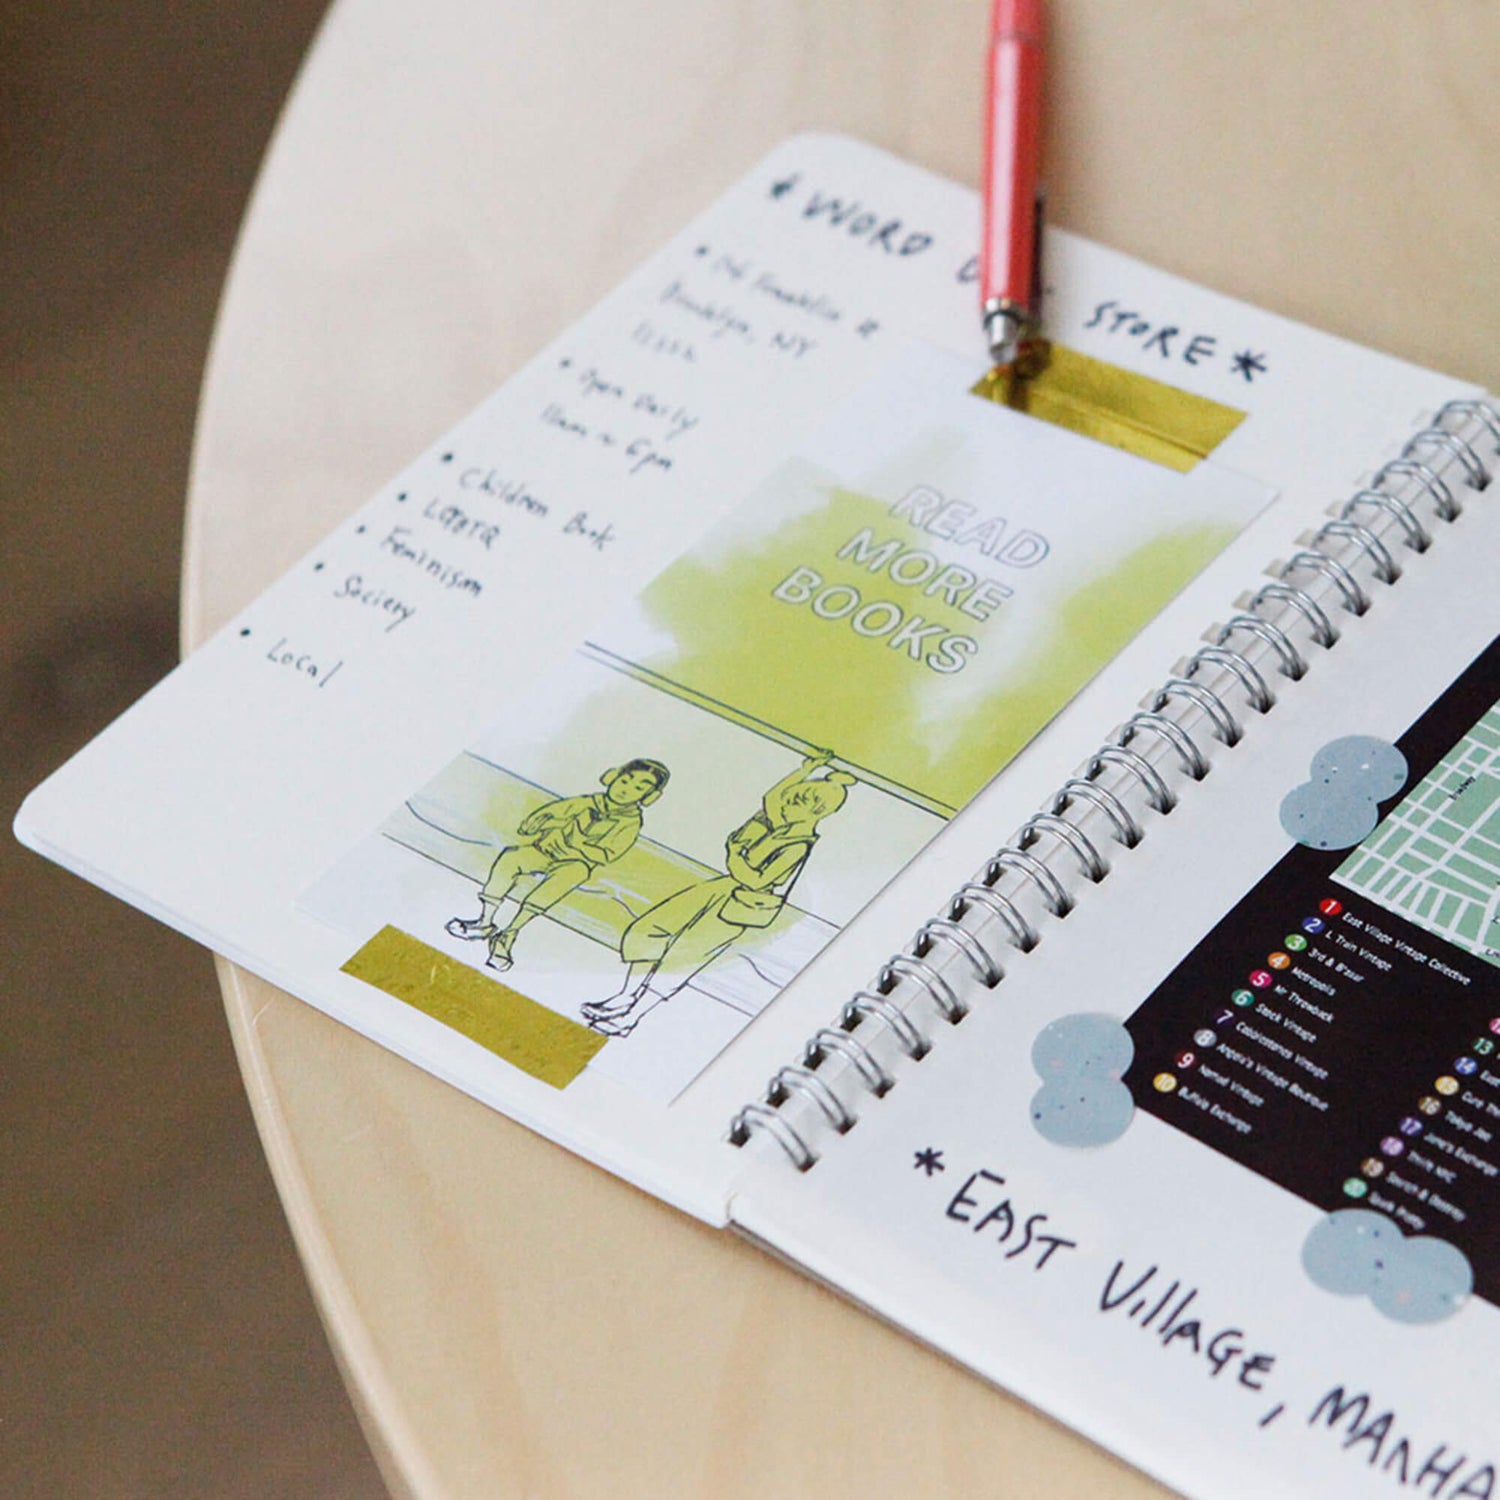 * WORD STORE *
• 126 Franklin st
Brooklyn, NY
11222
• Open Daily
11am ~ 6pm
• Children Book
• LGBTQ
• Feminism
• Society
• Local
READ
MORE
BOOKS
1 East Village Vintage Collective
2 L Train Vintage
3 3rd & B'zaar
4 Metropolis
5 Mr Throwback
6 Stock Vintage
7 Cobblestones Vintage
8 Angela's Vintage Boutique
9 Named Vintage
10 Buffalo Exchange
13
14
15 Cure
16 Tokyo Joe
17 Jane's Exchange
18 Thrift NYC
19 Search & Destroy
20
* EAST VillAGE, MANHA